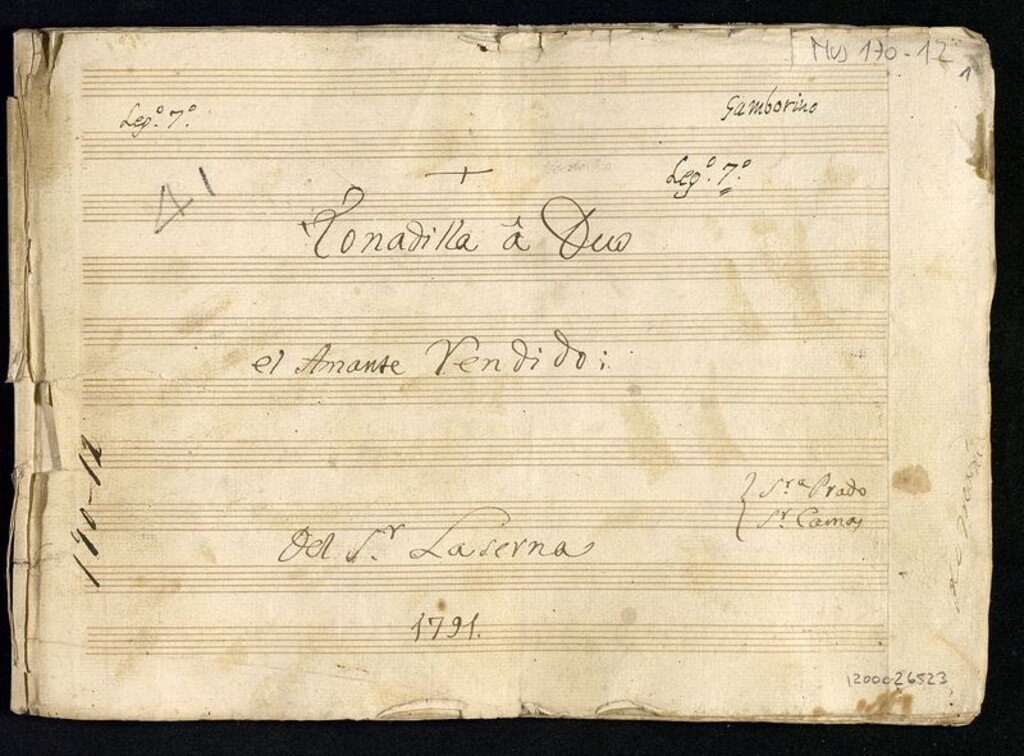 Mus 170-12
1
Leg.º 7.º
Gamborino
Leg.º 7.º
41
Tonadilla â Duo
el Amante Vendido;
170-12
Sr.ª Prado
Sr. Camas
Del S.r Laserna
1791.
1200026523